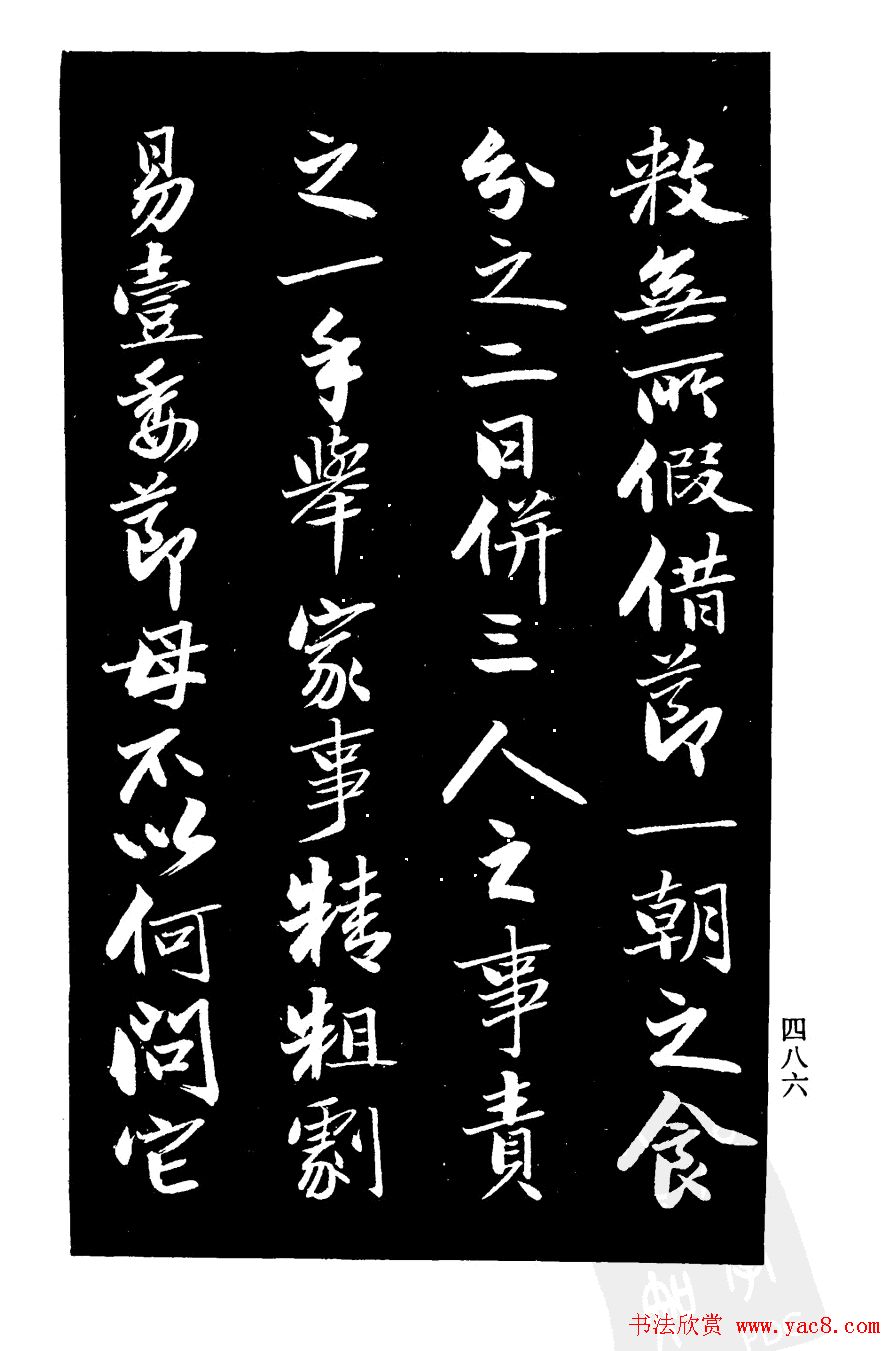 敕無所假借節一朝之食
分之二日併三人之事責
之一手舉家事精粗劇
易壹委節母不以何問它
四八六
书法欣赏 www.yac8.com